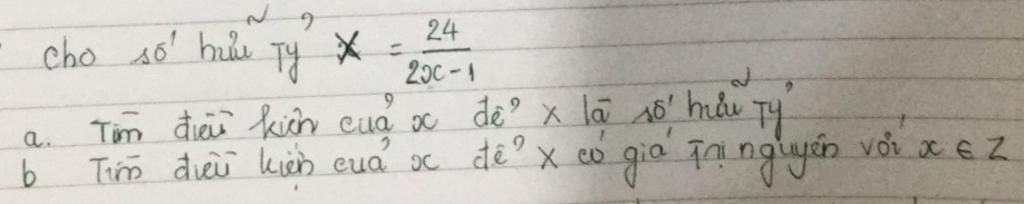 Cho số hữu tỷ X = 24/(2x-1)
a. Tìm điều kiện của x để x là số hữu tỷ
b Tìm điều kiện của x để x có giá trị nguyên với x ∈ Z